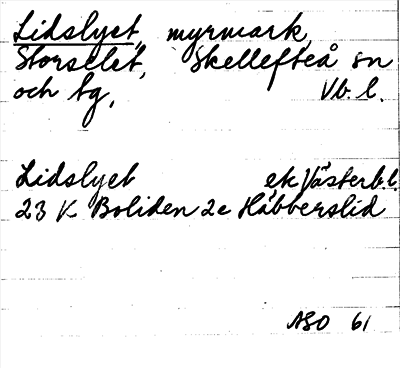 Lidslyet, myrmark,
Storselet, Skellefteå sn
och tg, Vb. l.
Lidslyet ek Västerb.l.
23 K Boliden 2e Häbberslid
ASO 61